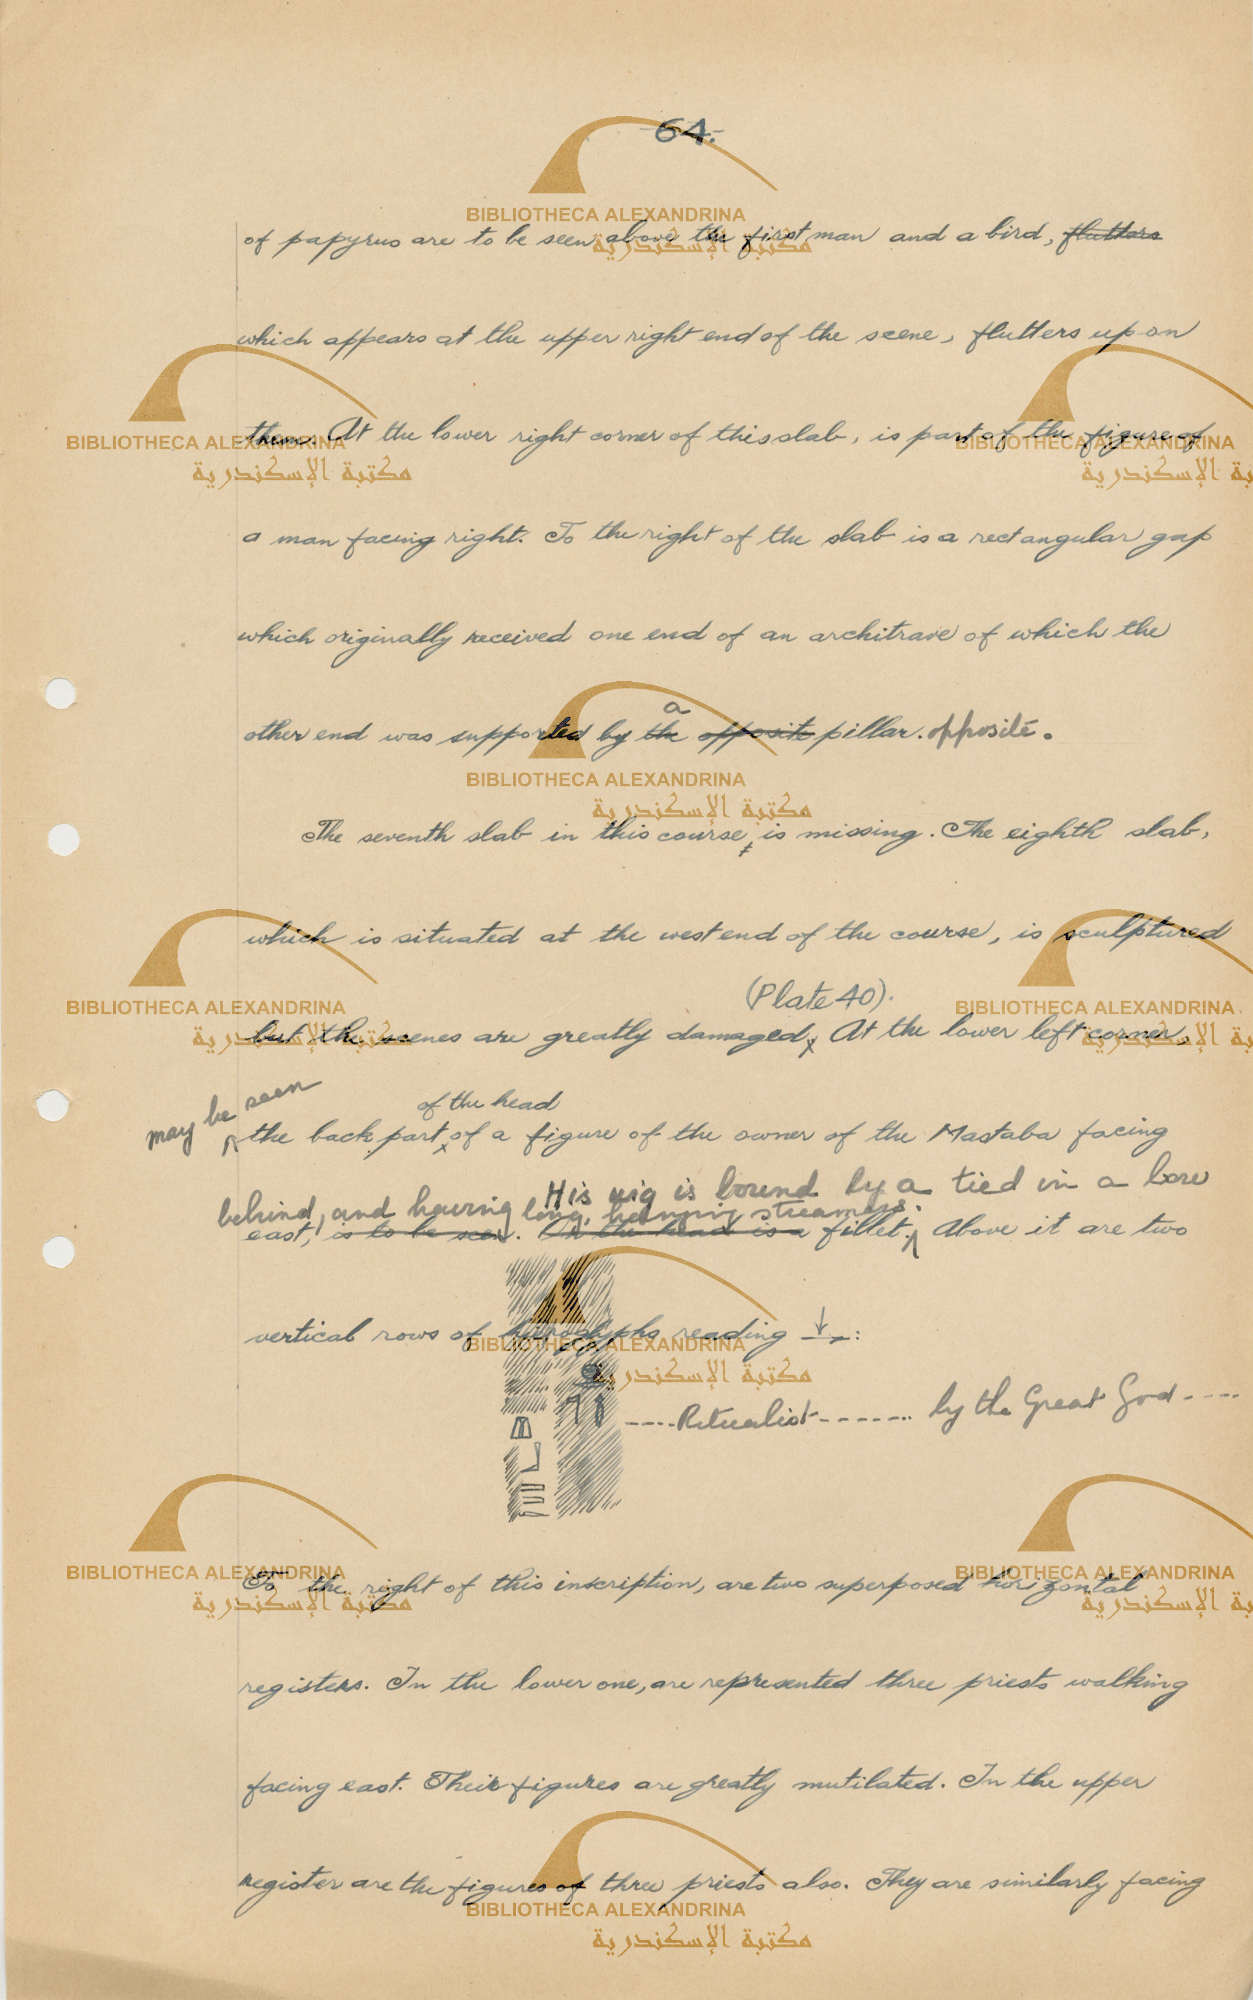 64.
of papyrus are to be seen above the first man and a bird, flutters
which appears at the upper right end of the scene, flutters up on
them. At the lower right corner of this slab, is part of the figure of
a man facing right. To the right of the slab is a rectangular gap
which originally received one end of an architrave of which the
a
other end was supported by the opposite pillar. opposite.
The seventh slab in this course, is missing. The eighth slab,
which is situated at the west end of the course, is sculptured
(Plate 40).
but the scenes are greatly damaged. At the lower left corner,
may be seen
of the head
the back part of a figure of the owner of the Mastaba facing
His wig is bound by a tied in a bow
behind, and having long, hanging streamers.
east, is to be seen. On the head is a fillet. Above it are two
vertical rows of hieroglyphs reading ↓→:
----Ritualist------- by the Great God ----
To the right of this inscription, are two superposed horizontal
registers. In the lower one, are represented three priests walking
facing east. Their figures are greatly mutilated. In the upper
register are the figures of three priests also. They are similarly facing
BIBLIOTHECA ALEXANDRINA
مكتبة الإسكندرية